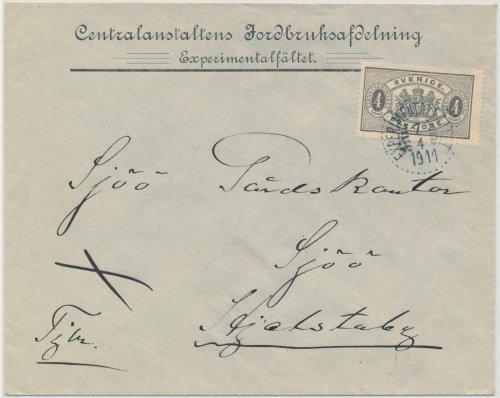 Centralanstaltens Jordbruksafdelning
Experimentalfältet.
SVERIGE.
4 4
TJENSTE
FYRA ÖRE
4
1911
Sjöö Gårdskontor
Sjöö
Hjelstaby
Tjbr.